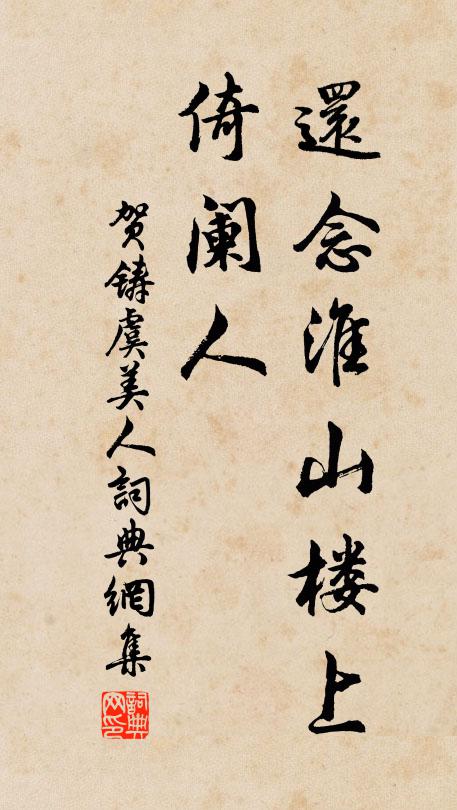 還念淮山楼上
倚阑人
贺鑄虞美人詞典網集
詞典网印